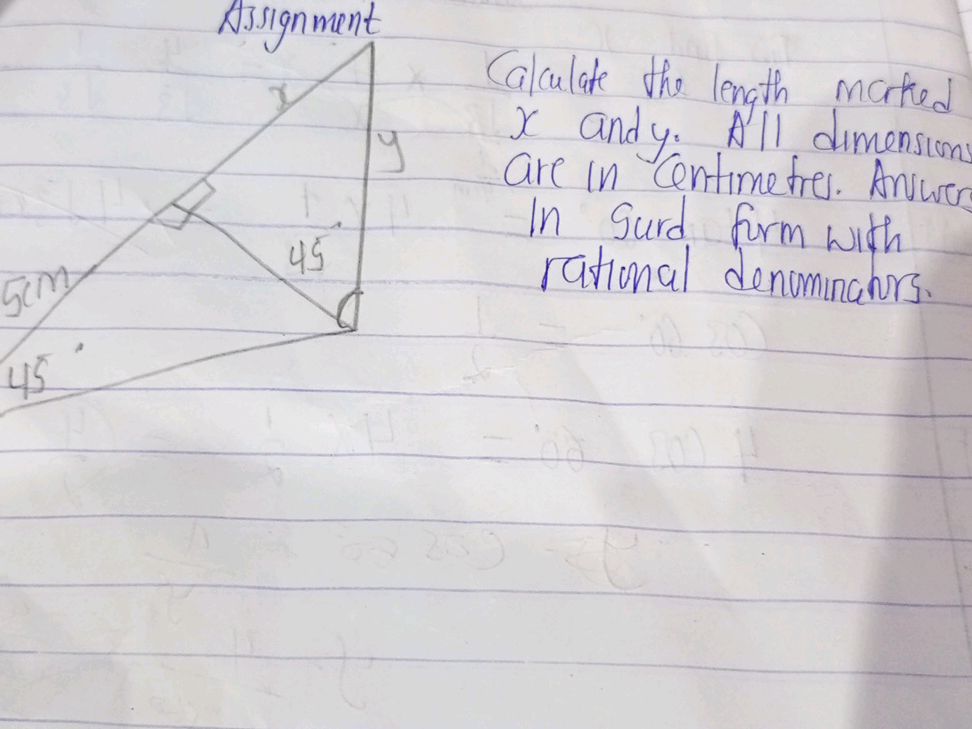 Assignment
Calculate the length marked
x and y. All dimensions
are in Centimetres. Answers
In Surd form with
rational denominators.
x
y
45°
5cm
45°